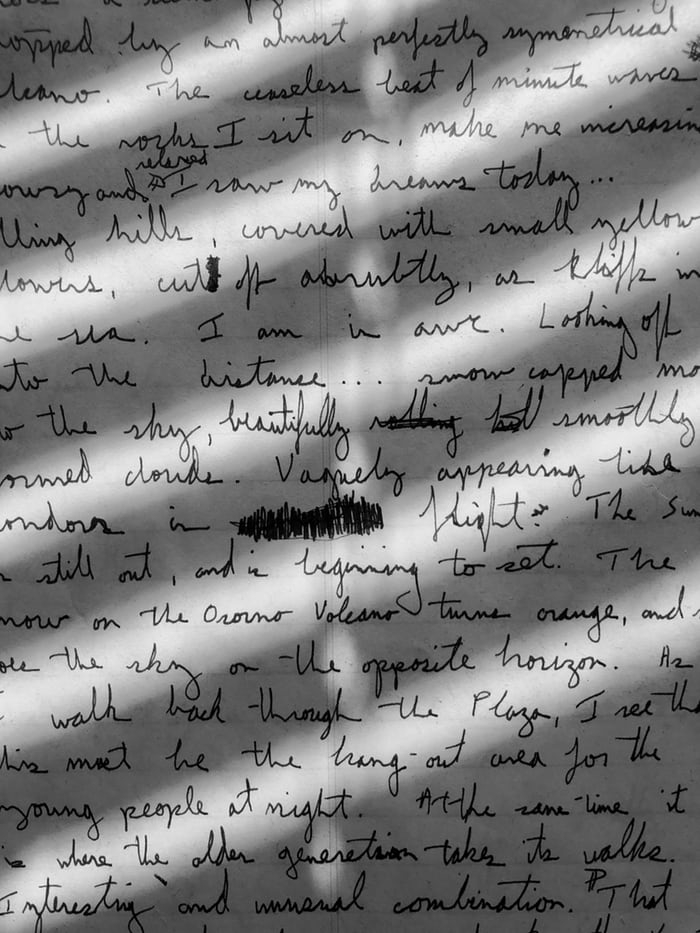 topped by an almost perfectly symmetrical
lcano. The ceaseless beat of minute waves
the rocks I sit on, make me increasin
relaxed
owsy and I saw my dreams today...
lling hills, covered with small yellow
lowers, cut off abrubtly, as kliffs in
e sea. I am in awe. Looking off
nto the distance... snow capped mo
w the sky, beautifully rolling smoothly
ormed clouds. Vaguely appearing like
ondors in flight. The sun
still out, and is beginning to set. The
now on the Osorno Volcano turns orange, and
oes the sky on the opposite horizon. As
I walk back through the Plaza, I see tha
his must be the hang-out area for the
young people at night. At the same time it
is where the older generation takes its walks.
Interesting and unusual combination. That